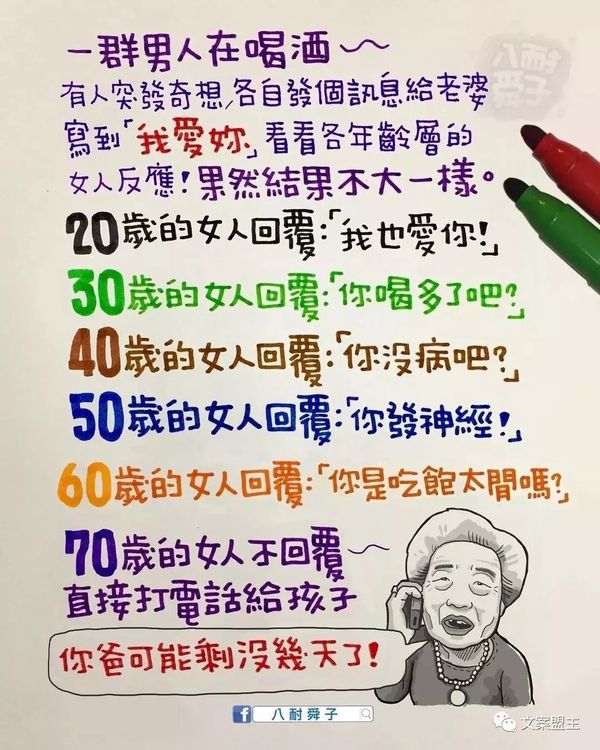 一群男人在喝酒~
八耐舜子
有人突發奇想，各自發個訊息給老婆
寫到「我愛妳」看看各年齡層的
女人反應！果然結果不大一樣。
20歲的女人回覆：「我也愛你！」
30歲的女人回覆：「你喝多了吧？」
40歲的女人回覆：「你沒病吧？」
50歲的女人回覆：「你發神經！」
60歲的女人回覆：「你是吃飽太閒嗎？」
70歲的女人不回覆~
直接打電話給孩子
你爸可能剩沒幾天了！
f 八耐舜子
文案盟主